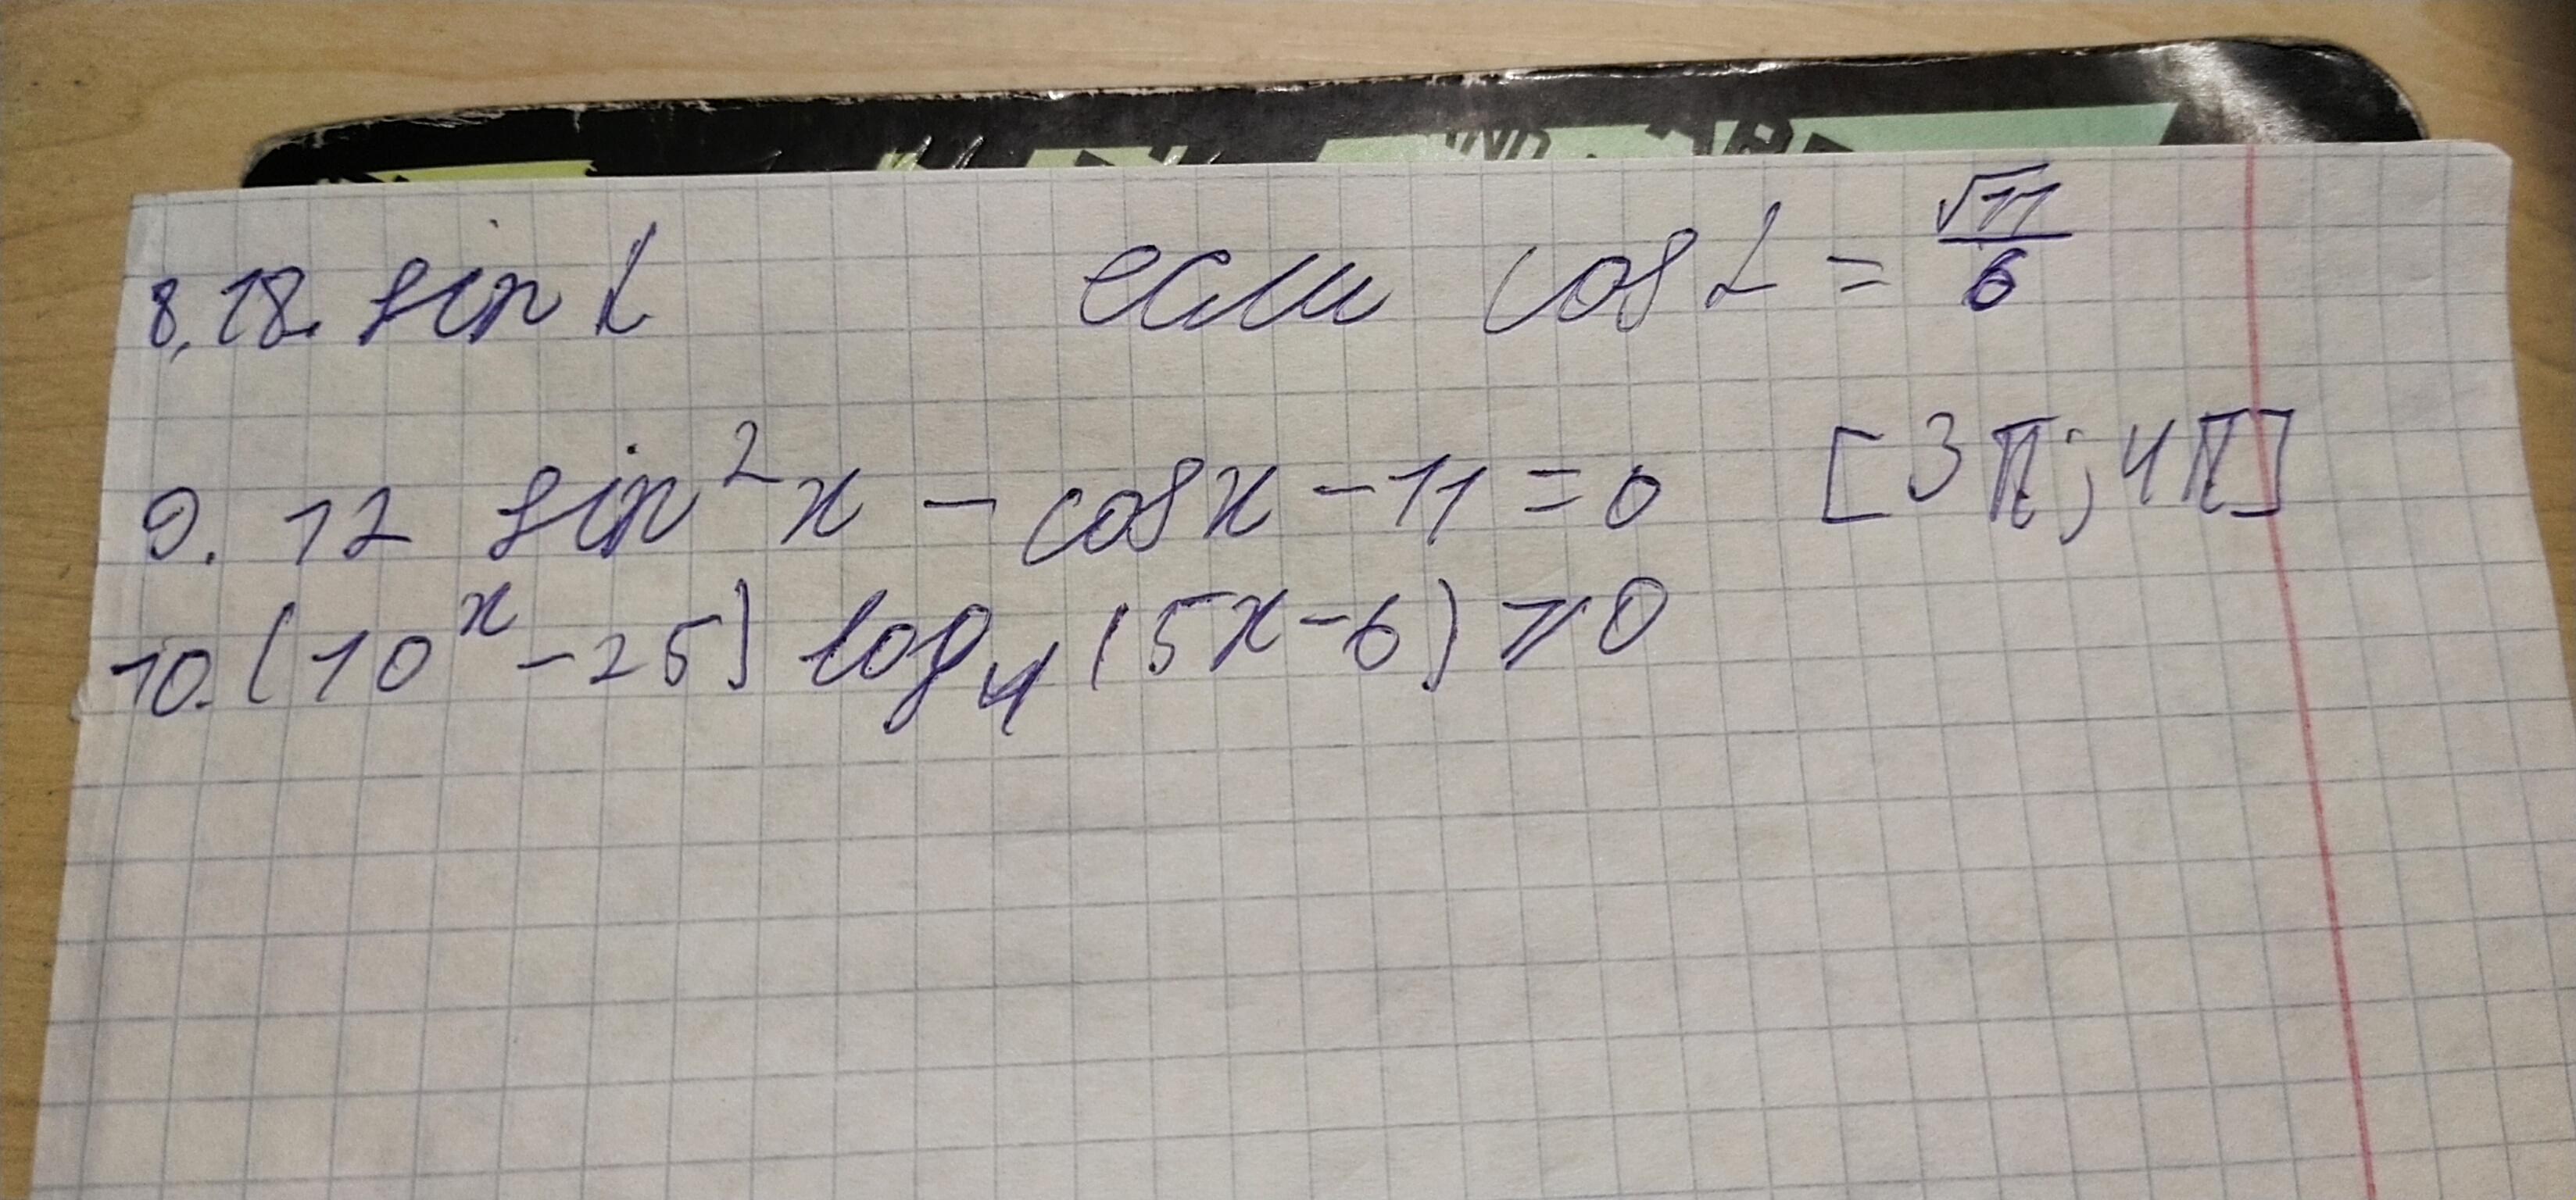 8. 18. sin α если cos α = √11/6
9. 12 sin²x - cosx - 11 = 0 [3π; 4π]
10. (10ˣ - 25) log₄ (5x - 6) ≥ 0